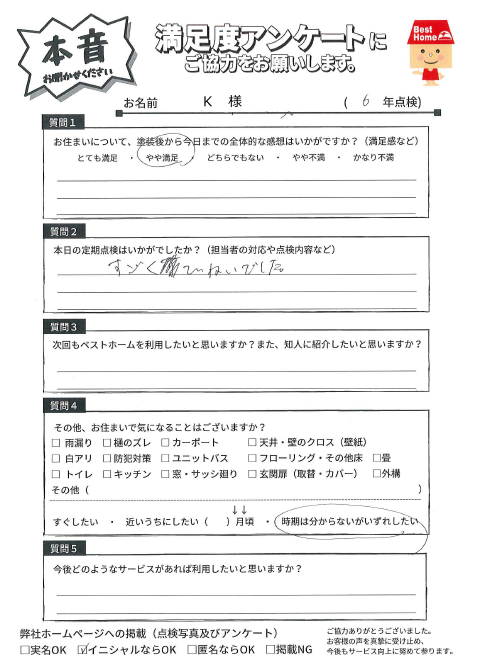 本音
お聞かせください
満足度アンケートに
ご協力をお願いします。
Best Home
お名前 K 様 ( 6 年点検)
質問1
お住まいについて、塗装後から今日までの全体的な感想はいかがですか？（満足感など）
とても満足 ・ やや満足 ・ どちらでもない ・ やや不満 ・ かなり不満
質問2
本日の定期点検はいかがでしたか？（担当者の対応や点検内容など）
すごく ていねいでした
質問3
次回もベストホームを利用したいと思いますか？また、知人に紹介したいと思いますか？
質問4
その他、お住まいで気になることはございますか？
□ 雨漏り □ 樋のズレ □ カーポート □ 天井・壁のクロス（壁紙）
□ 白アリ □ 防犯対策 □ ユニットバス □ フローリング・その他床 □畳
□ トイレ □ キッチン □ 窓・サッシ廻り □ 玄関扉（取替・カバー） □外構
その他（ ）
↓↓
すぐしたい ・ 近いうちにしたい（ ）月頃 ・ 時期は分からないがいずれしたい
質問5
今後どのようなサービスがあれば利用したいと思いますか？
弊社ホームページへの掲載（点検写真及びアンケート）
□実名OK ☑イニシャルならOK □匿名ならOK □掲載NG
ご協力ありがとうございました。
お客様の声を真摯に受け止め、
今後もサービス向上に努めて参ります。